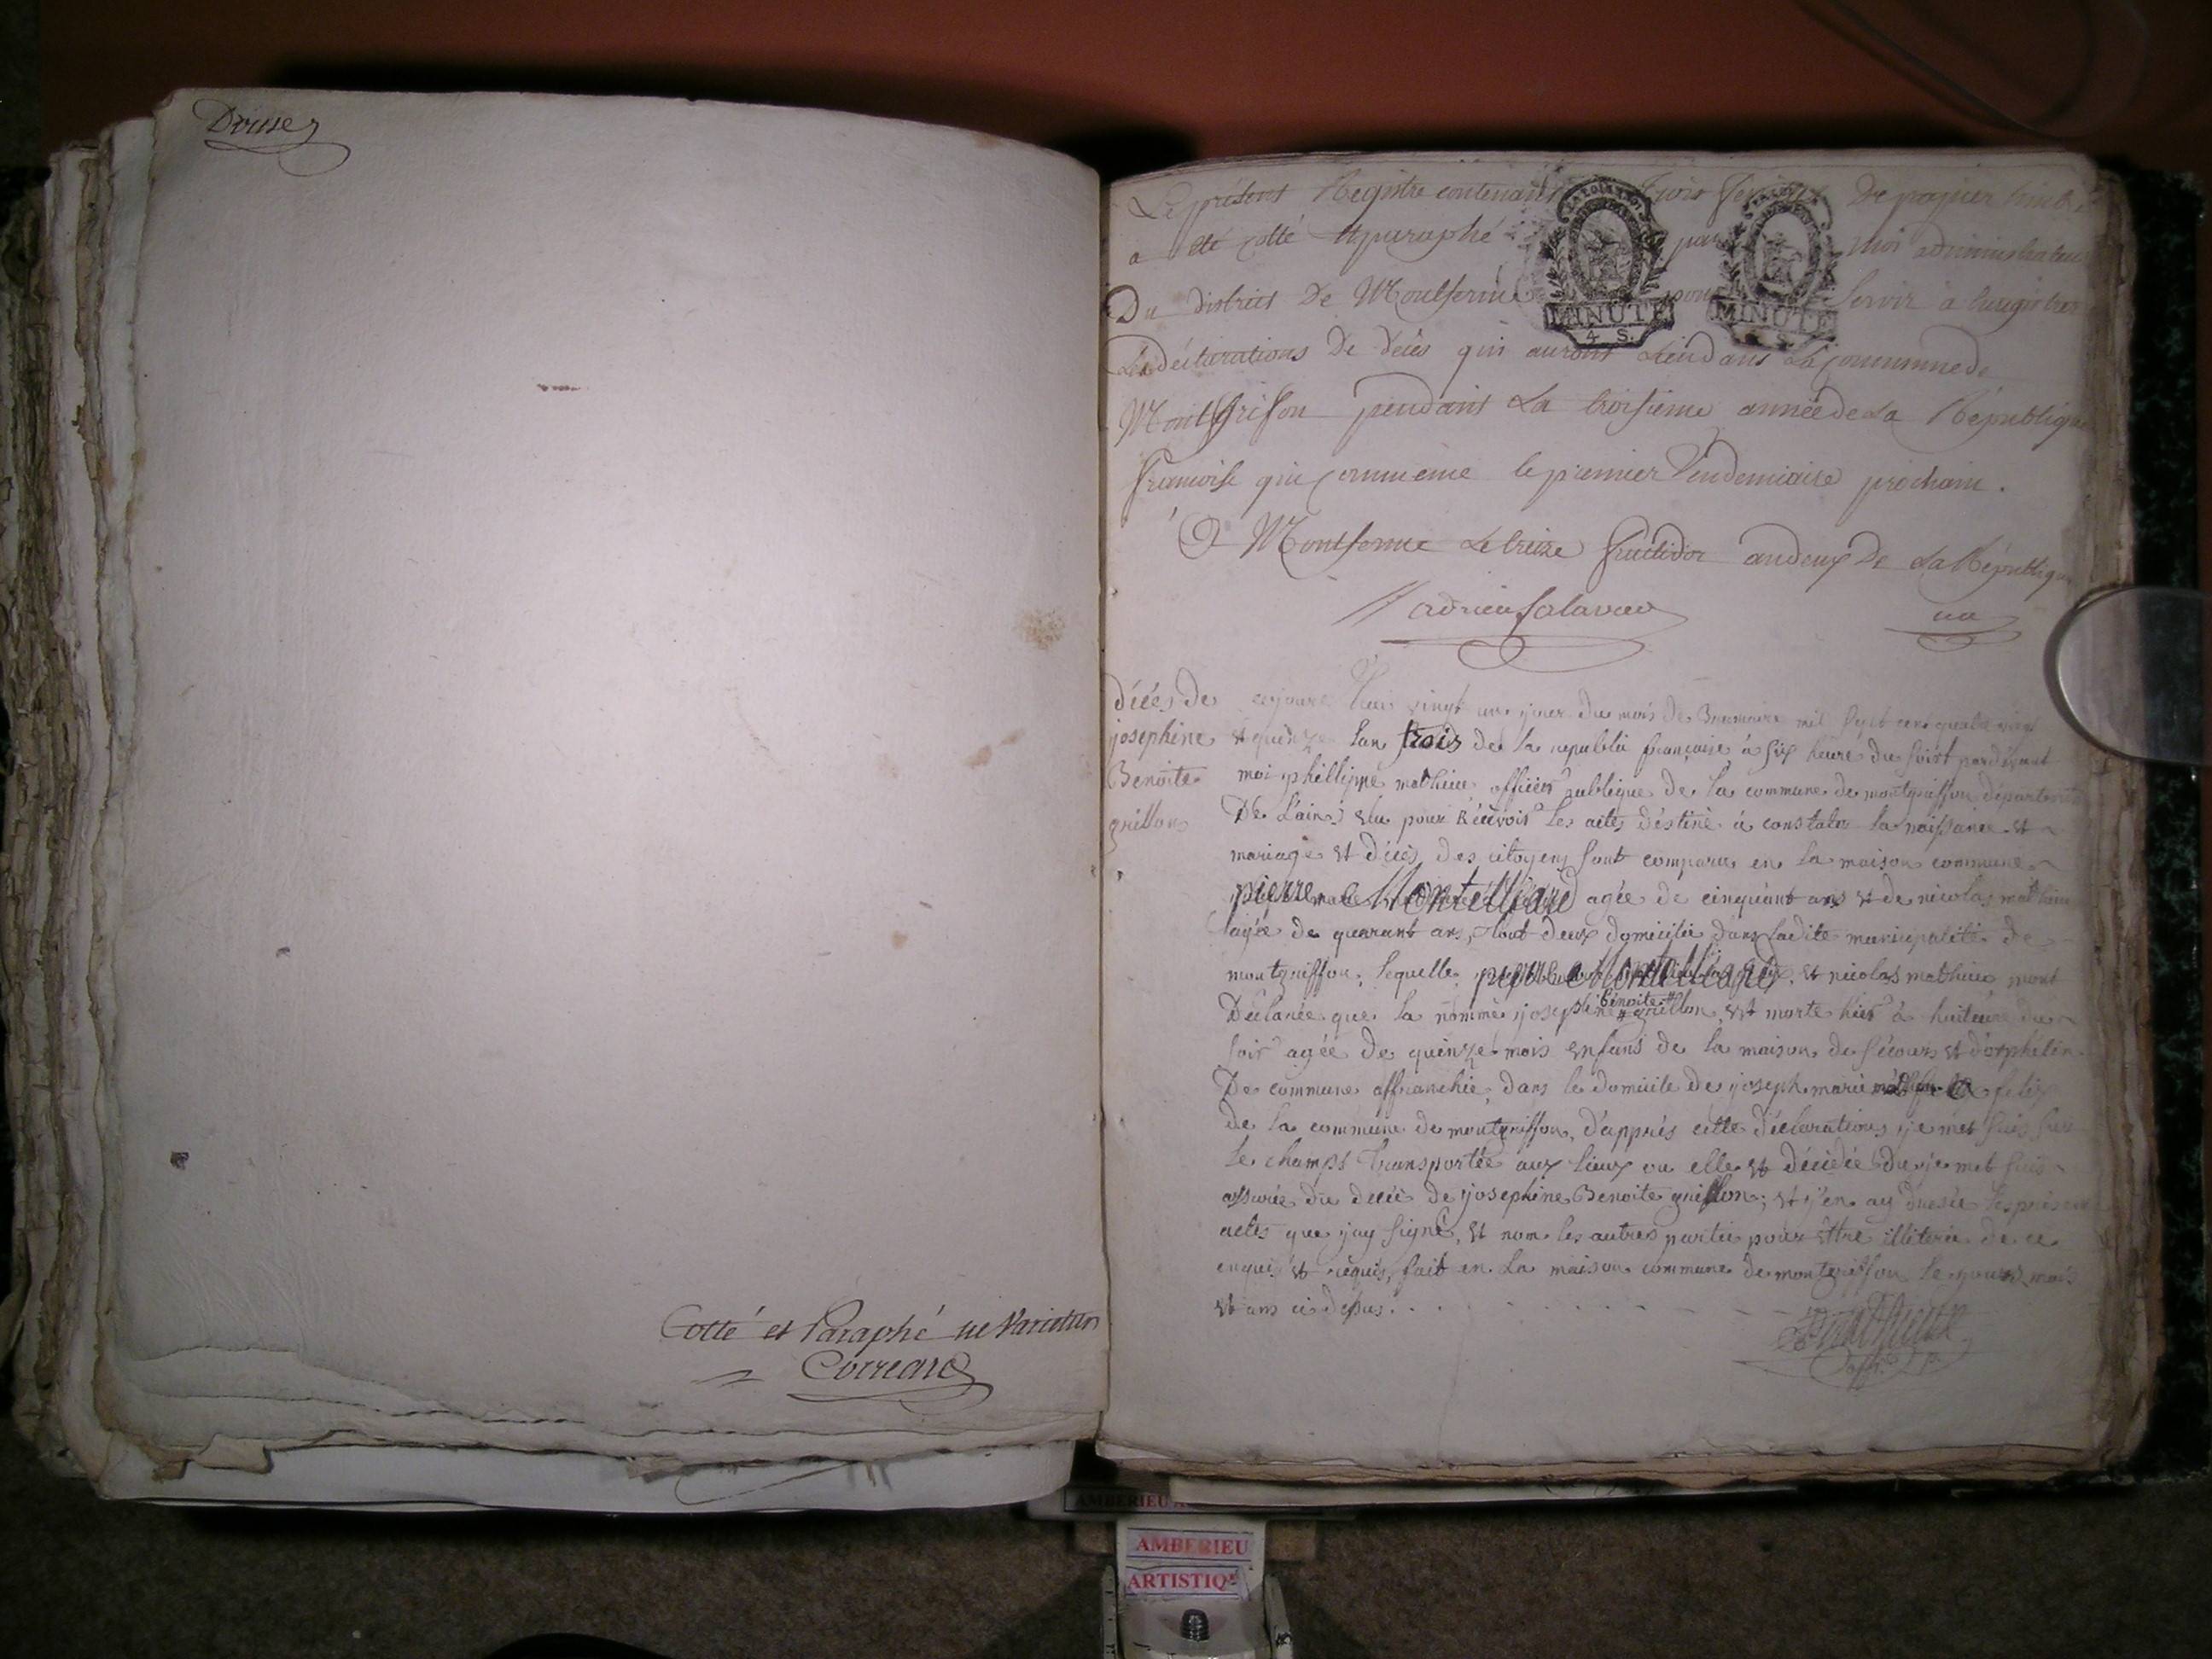 Douze
Cotté et Paraphé ne Varietur
Le présent Registre contenant trois feuilles De papier timbré
a été cotté et paraphé par moi administrateur
Du district De Montferme pour servir à enregistrer
Les déclarations De décès qui auront Lieu dans La commune de
Montgrifon pendant La troisieme année de La République
françoise qui commence le premier Vendemiaire prochain.
A Montferme Le treize fructidor an deux De La République
MINUTE
4 S.
MINUTE
décés de
josephine
Benoite
grillon
cejourd'hui vingt un jour du mois de Brumaire mil sept cent quatre vingt
et quinze lan trois de la republi française à six heure du soir pardevant
moi phillippe mathieu officier publique de la commune de montgriffon département
De L'ain élu pour recevoir les actes déstiné à constater la naissance et
mariage et décés des citoyens sont comparu en la maison commune
pierre Montilliard agée de cinquant ans et de nicolas mathieu
agée de quarant ans, tout deux domicilié dans ladite municipalité de
montgriffon; lequelle pierre Montilliard et nicolas mathieu mont
Déclarée que la nommé josephine benoite grillon, est morte hier à huit heure du
soir agée de quinze mois enfans de la maison de sécours et d'orphélin
De commune affranchie, dans le domicile de joseph marie
de la commune de montgriffon, d'apprés cette déclarations je met suis sur
le champs transportée aux lieux ou elle et décédée je met suis
assurée du décé de josephine Benoite grillon; et j'en ay dressée les présent
actes que jay signé, et nom les autres partie pour ettre illiterée de ce
enquis et requis, fait en La maison commune de montgriffon le jour mois
et ans ci dessus.
AMBERIEU
AMBERIEU
ARTISTIQ